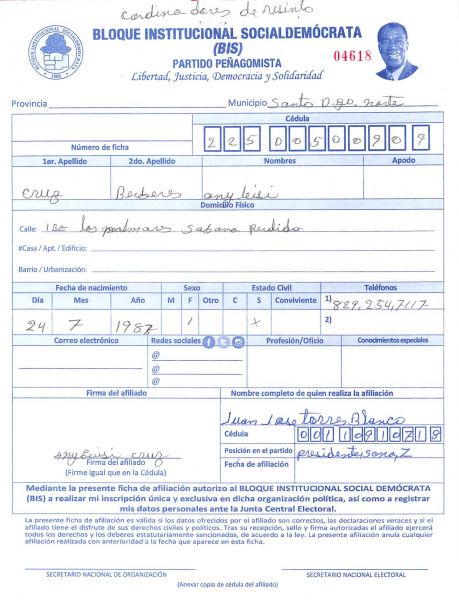 cordinadores de resinto
BLOQUE INSTITUCIONAL SOCIALDEMÓCRATA
(BIS)
PARTIDO PEÑAGOMISTA
Libertad, Justicia, Democracia y Solidaridad
04618
Provincia Municipio Santo Dgo. norte
Cédula
Número de ficha 225 0050909
1er. Apellido 2do. Apellido Nombres Apodo
Cruz any leisi
Domicilio Físico
Calle: los palmares Sabana Perdida
#Casa / Apt. / Edificio:
Barrio / Urbanización:
Fecha de nacimiento Sexo Estado Civil Teléfonos
Día Mes Año M F Otro C S Conviviente 1) 829,254,7117
24 7 1987 / x 2)
Correo electrónico Redes sociales Profesión/Oficio Conocimientos especiales
@
@
@
Firma del afiliado Nombre completo de quien realiza la afiliación
Juan Jose torres Blanco
Cédula
001 10910718
anyleisi cruz Posición en el partido presidente zona, Z
Firma del afiliado Fecha de afiliación
(Firme igual que en la Cédula)
Mediante la presente ficha de afiliación autorizo al BLOQUE INSTITUCIONAL SOCIAL DEMÓCRATA
(BIS) a realizar mi inscripción única y exclusiva en dicha organización política, así como a registrar
mis datos personales ante la Junta Central Electoral.
La presente ficha de afiliación es válida si los datos ofrecidos por el afiliado son correctos, las declaraciones veraces y si el
afiliado tiene el disfrute de sus derechos civiles y políticos. Tras su recepción, sello y firma autorizadas el afiliado ejercerá
todos los derechos y los deberes estatutariamente sancionados, de acuerdo a la ley. La presente afiliación anula cualquier
afiliación realizada con anterioridad a la fecha que aparece en esta ficha.
SECRETARIO NACIONAL DE ORGANIZACIÓN SECRETARIO NACIONAL ELECTORAL
(Anexar copia de cédula del afiliado)